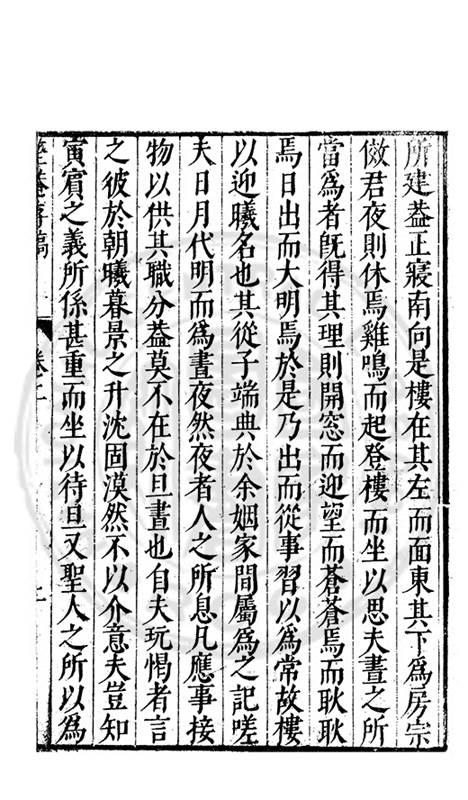 所建蓋正寢南向是樓在其左而面東其下爲房宗
儆君夜則休焉雞鳴而起登樓而坐以思夫晝之所
當爲者旣得其理則開窓而迎望而蒼蒼焉而耿耿
焉日出而大明焉於是乃出而從事習以爲常故樓
以迎曦名也其從子端典於余姻家間屬爲之記嗟
夫日月代明而爲晝夜然夜者人之所息凡應事接
物以供其職分蓋莫不在於旦晝也自夫玩愒者言
之彼於朝曦暮景之升沈固漠然不以介意夫豈知
寅賓之義所係甚重而坐以待旦又聖人之所以爲